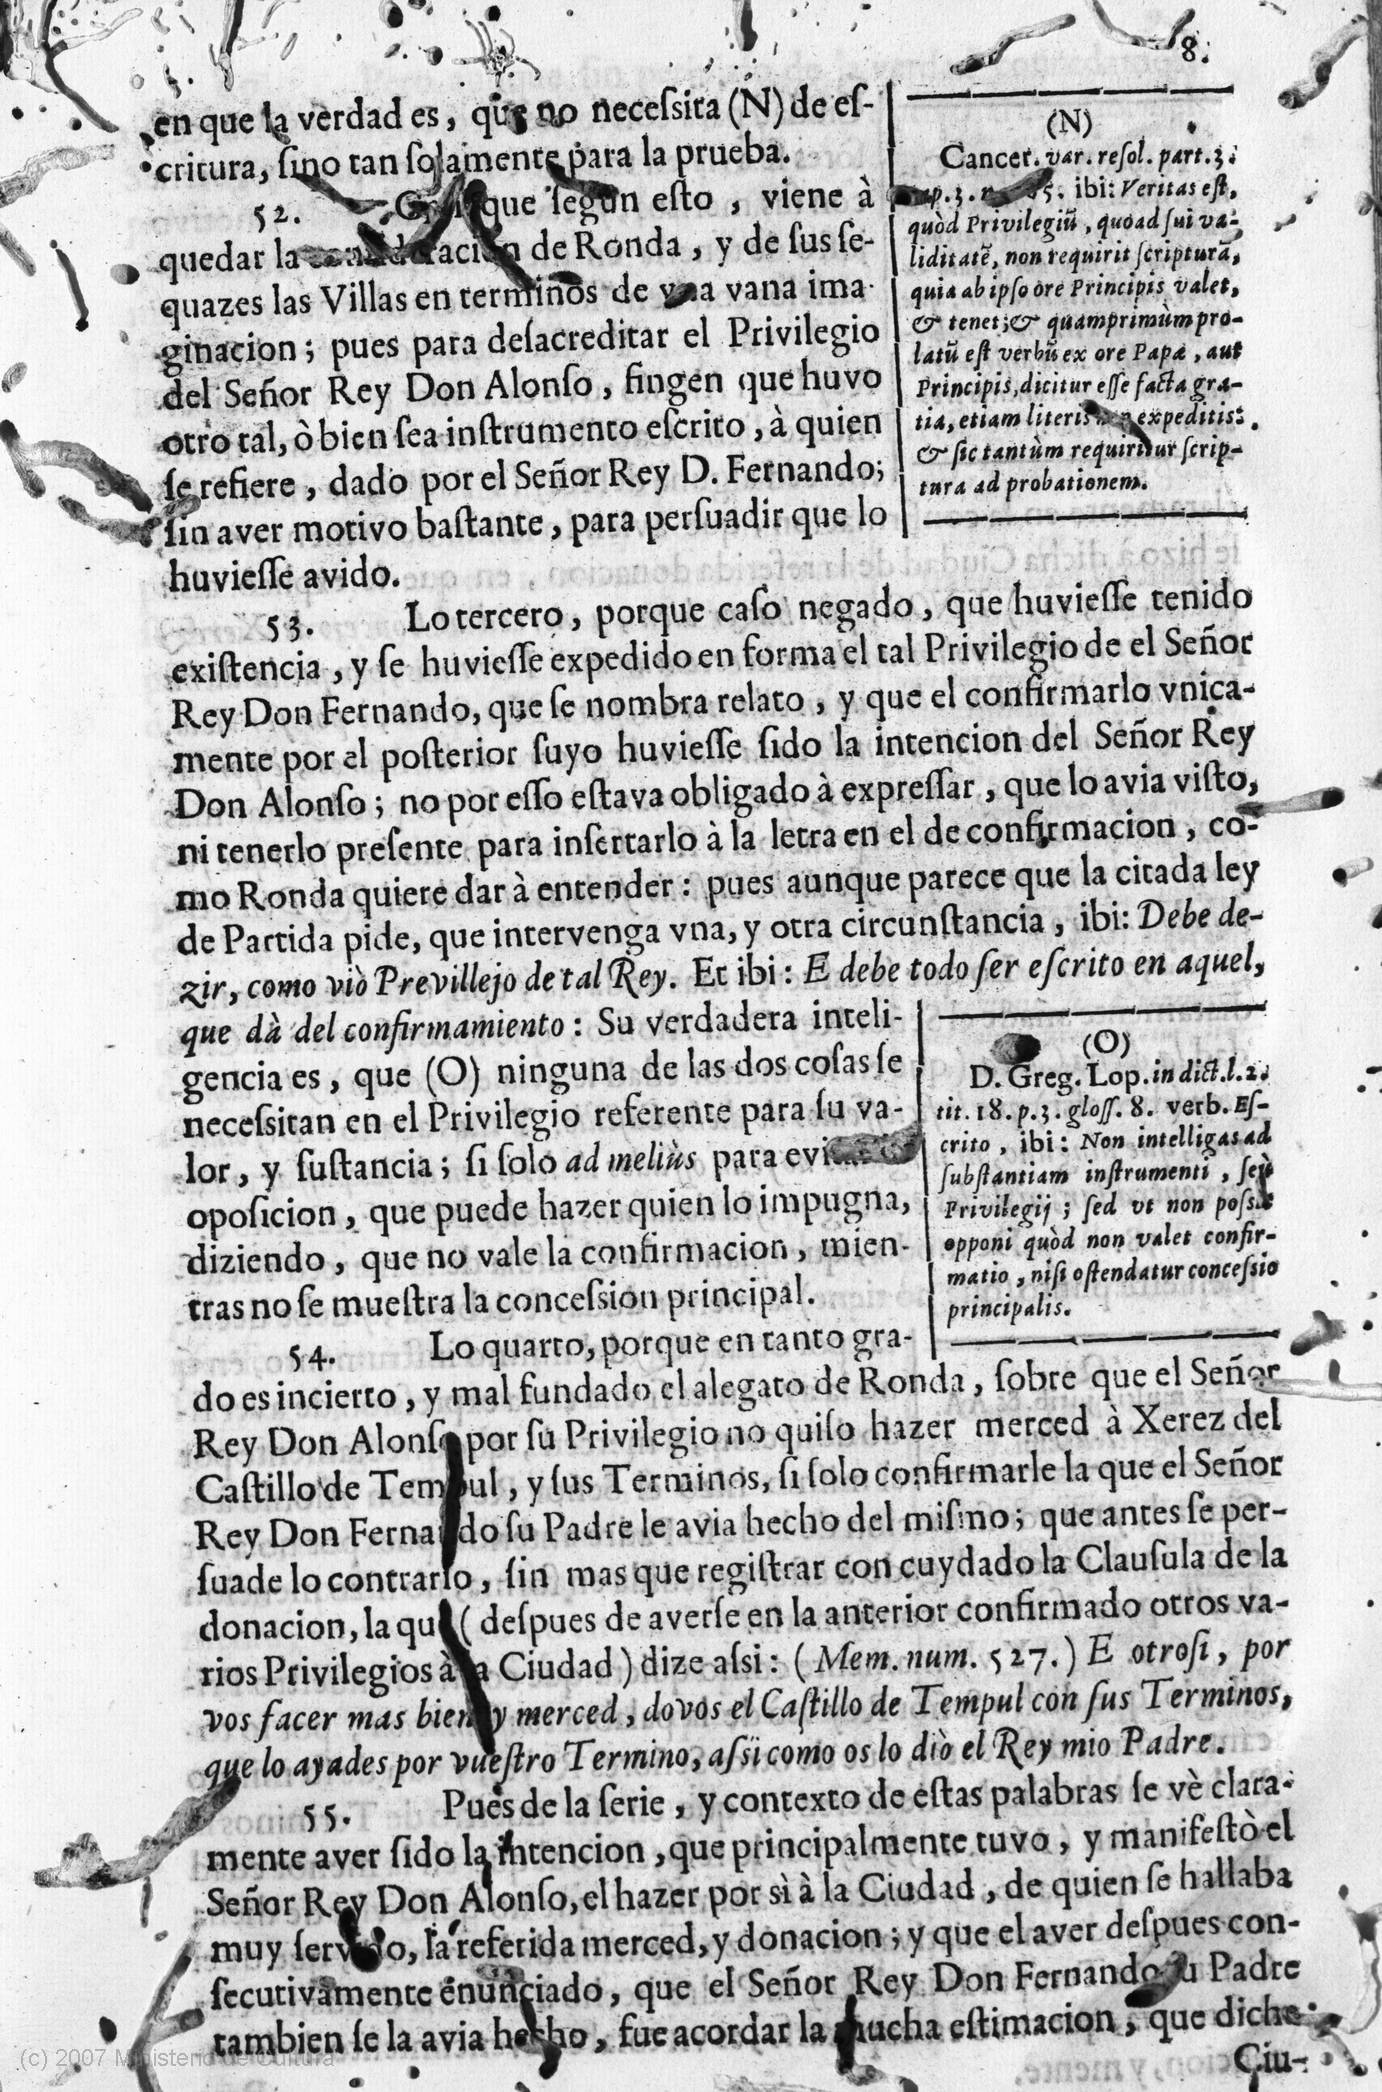 8.
en que la verdad es, que no necessita (N) de es-
critura, sino tan solamente para la prueba.
52. que segun esto, viene à
quedar la de Ronda, y de sus se-
quazes las Villas en terminos de vna vana ima-
ginacion; pues para desacreditar el Privilegio
del Señor Rey Don Alonso, fingen que huvo
otro tal, ò bien sea instrumento escrito, à quien
se refiere, dado por el Señor Rey D. Fernando;
sin aver motivo bastante, para persuadir que lo
huviesse avido.
(N)
Cancer. var. resol. part. 3.
ibi: Veritas est,
quòd Privilegiũ, quoad sui va-
liditatẽ, non requirit scripturã,
quia ab ipso ore Principis valet,
& tenet; & quamprimùm pro-
latũ est verbũ ex ore Papæ, aut
Principis, dicitur esse facta gra-
tia, etiam literis non expeditis:
& sic tantùm requiritur scrip-
tura ad probationem.
53. Lo tercero, porque caso negado, que huviesse tenido
existencia, y se huviesse expedido en forma el tal Privilegio de el Señor
Rey Don Fernando, que se nombra relato, y que el confirmarlo vnica-
mente por el posterior suyo huviesse sido la intencion del Señor Rey
Don Alonso; no por esso estava obligado à expressar, que lo avia visto,
ni tenerlo presente para insertarlo à la letra en el de confirmacion, co-
mo Ronda quiere dar à entender: pues aunque parece que la citada ley
de Partida pide, que intervenga vna, y otra circunstancia, ibi: Debe de-
zir, como viò Previllejo de tal Rey. Et ibi: E debe todo ser escrito en aquel,
que dà del confirmamiento: Su verdadera inteli-
gencia es, que (O) ninguna de las dos cosas se
necessitan en el Privilegio referente para su va-
lor, y sustancia; si solo ad meliùs para evitar
oposicion, que puede hazer quien lo impugna,
diziendo, que no vale la confirmacion, mien-
tras no se muestra la concession principal.
(O)
D. Greg. Lop. in dict. l. 2.
tit. 18. p. 3. gloss. 8. verb. Es-
crito, ibi: Non intelligas ad
substantiam instrumenti, seù
Privilegij; sed vt non possit
opponi quòd non valet confir-
matio, nisi ostendatur concessio
principalis.
54. Lo quarto, porque en tanto gra-
do es incierto, y mal fundado el alegato de Ronda, sobre que el Señor
Rey Don Alonso por su Privilegio no quiso hazer merced à Xerez del
Castillo de Tempul, y sus Terminos, si solo confirmarle la que el Señor
Rey Don Fernando su Padre le avia hecho del mismo; que antes se per-
suade lo contrario, sin mas que registrar con cuydado la Clausula de la
donacion, la qual (despues de averse en la anterior confirmado otros va-
rios Privilegios à la Ciudad) dize assi: (Mem. num. 527.) E otrosi, por
vos facer mas bien, y merced, dovos el Castillo de Tempul con sus Terminos,
que lo ayades por vuestro Termino, assi como os lo diò el Rey mio Padre.
55. Pues de la serie, y contexto de estas palabras se vè clara-
mente aver sido la intencion, que principalmente tuvo, y manifestò el
Señor Rey Don Alonso, el hazer por sì à la Ciudad, de quien se hallaba
muy servido, la referida merced, y donacion; y que el aver despues con-
secutivamente enunciado, que el Señor Rey Don Fernando su Padre
tambien se la avia hecho, fue acordar la mucha estimacion, que dicha
Ciu-
(c) 2007 Ministerio de Cultura